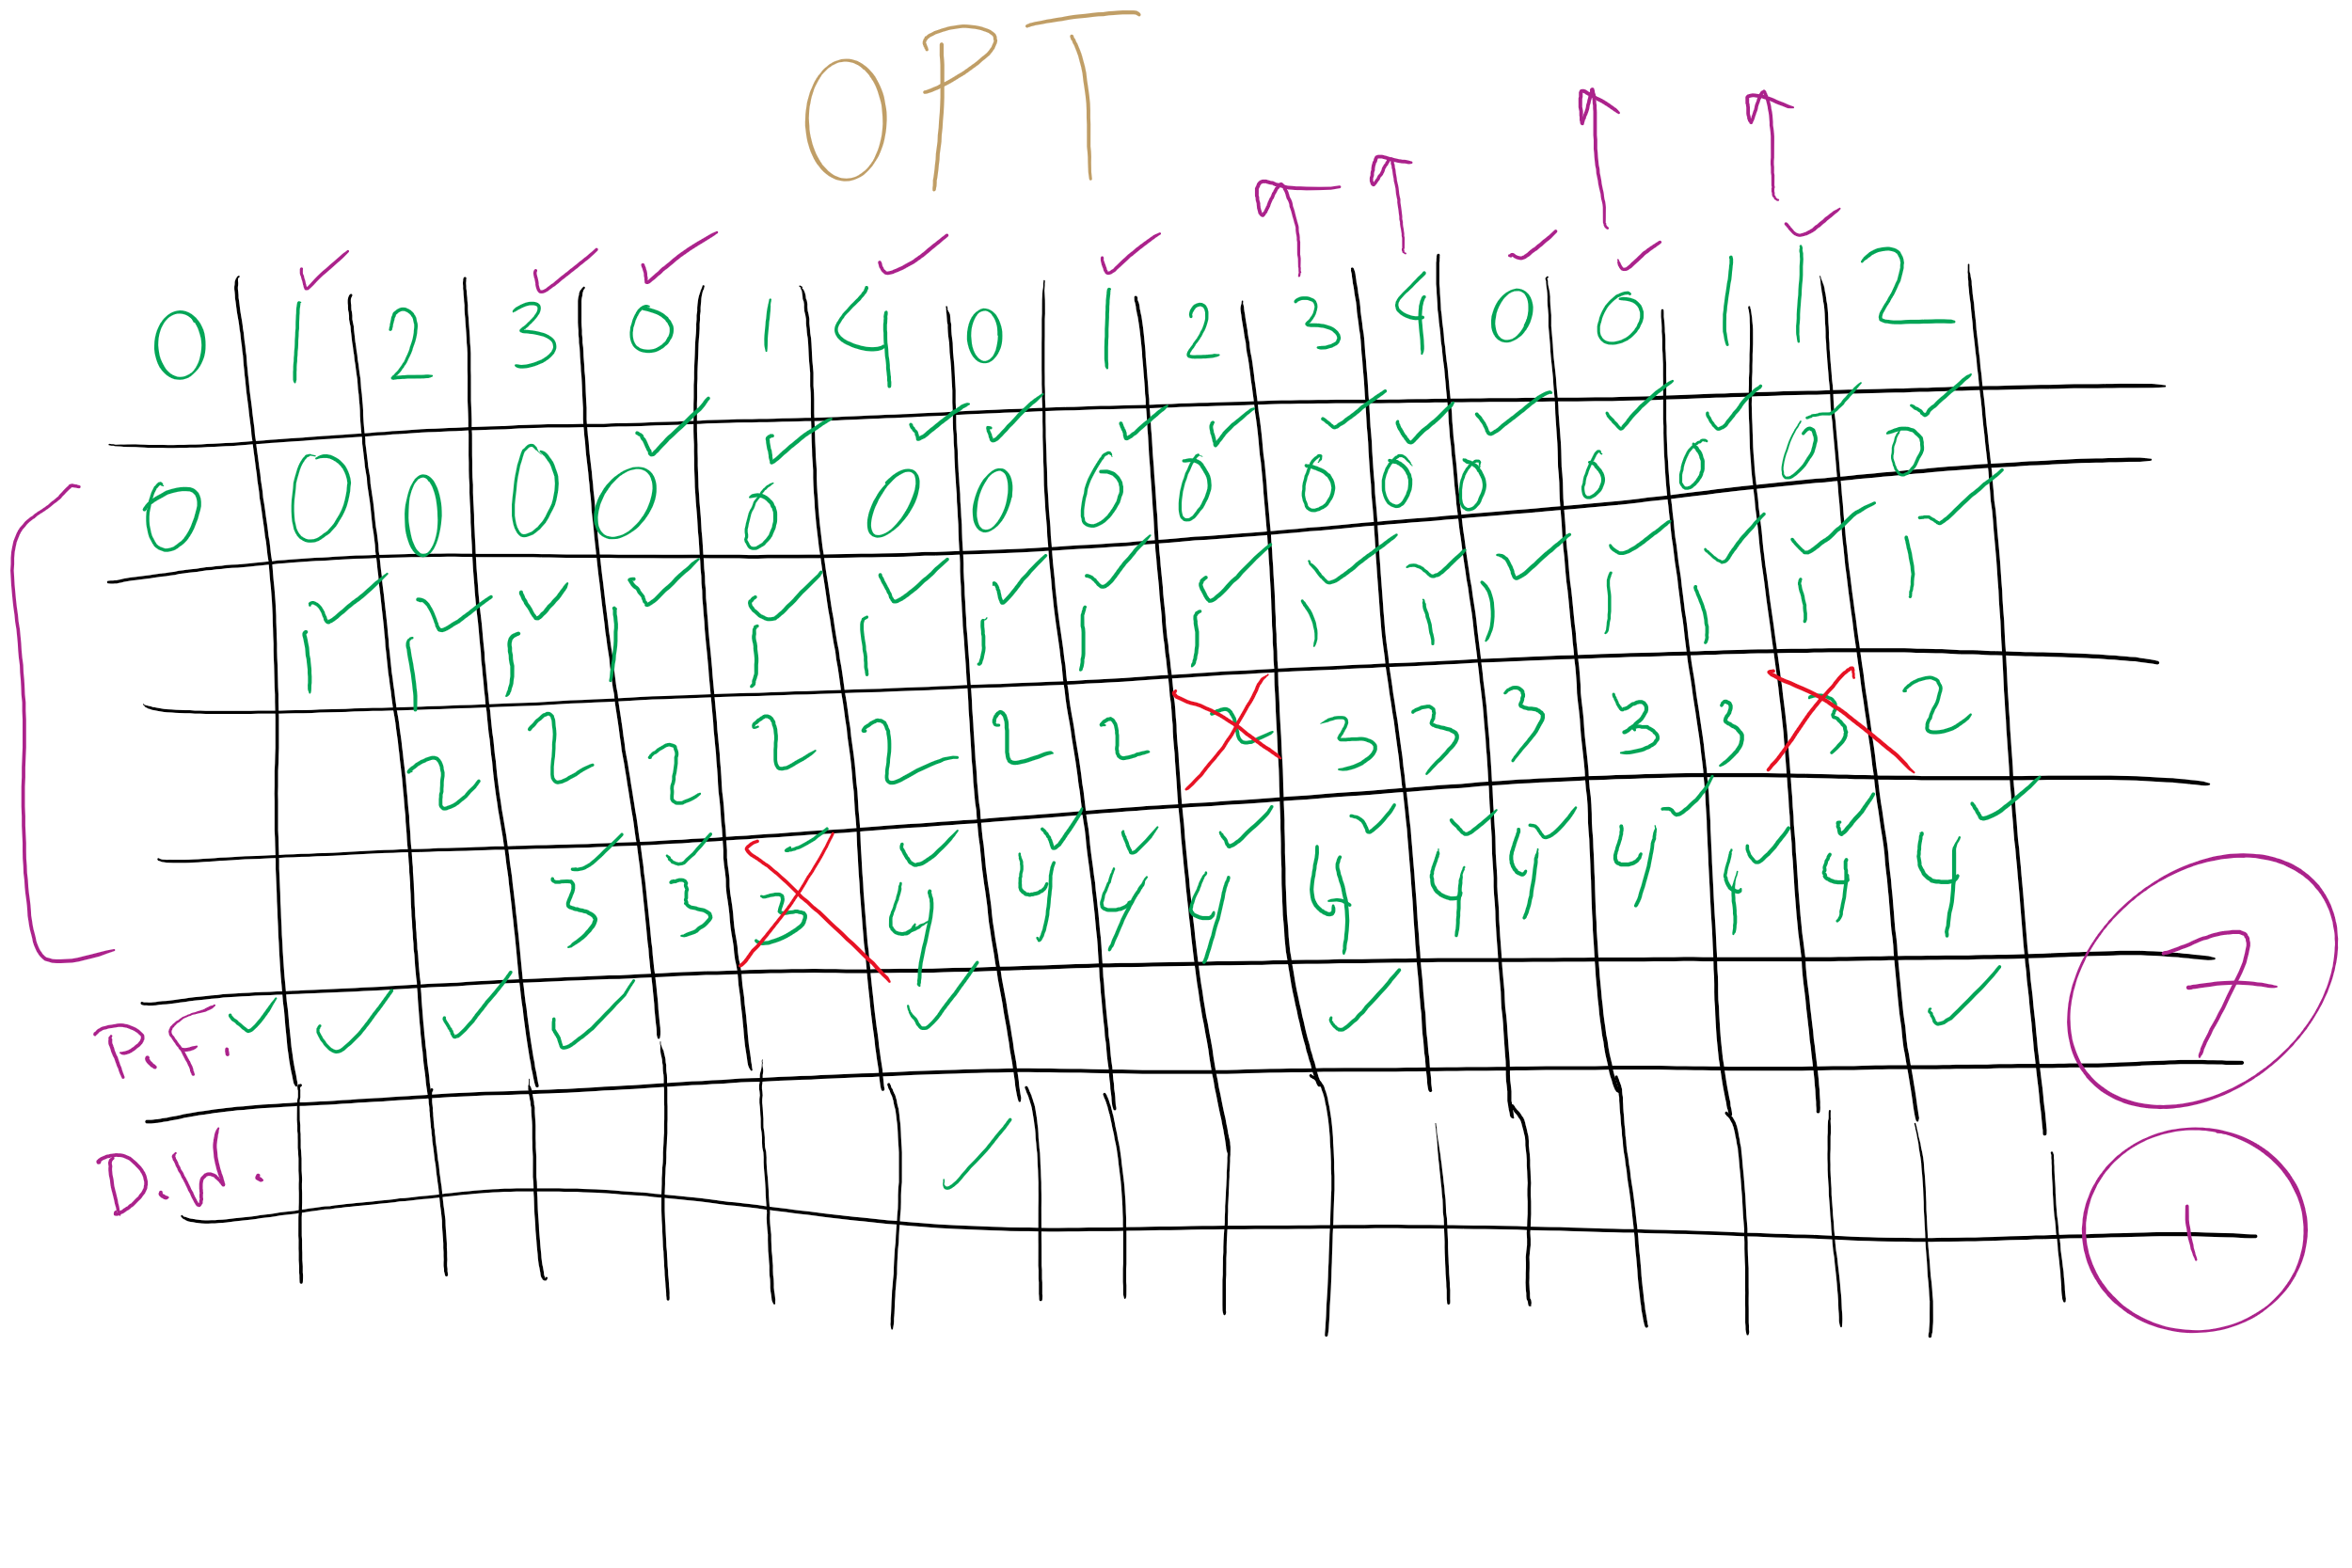 OPT
0 1 2 3 0 1 4 0 1 2 3 4 0 0 1 1 2
0 0 0 0 0 0 0 0 0 0 0 0 0 0 0 0 0
1 1 1 1 1 1 1 1 1 1 1 1 1 1 1 1
2 2 2 2 2 2 2 2 3 3 3 3 3 3 2
3 3 3 4 4 4 4 4 4 4 4 4 4 4
P.F. 7
D.W. 1